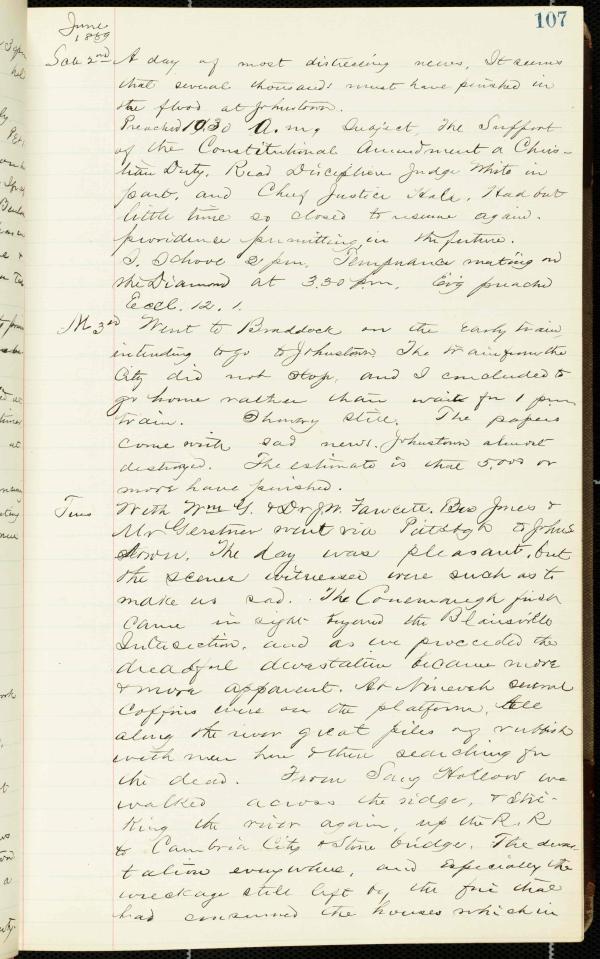 107
June
1889
Sab 2nd A day of most distressing news. It seems
that several thousands must have perished in
the flood at Johnstown.
Preached 10.30 A.m. Subject, The Support
of the Constitutional Amendment a Chris-
tian Duty. Read Discipline Judge White in
part, and Chief Justice Hale. Had but
little time so closed to resume again.
providence permitting, in the future.
S. School 2 pm. Temperance meeting on
the Diamond at 3.30 P.m. Evg preached
Eccl. 12. 1.
M 3rd Went to Braddock on the early train,
intending to go to Johnstown. The train from the
City did not stop, and I concluded to
go home rather than wait for 1 pm
train. still. The papers
come with sad news. Johnstown almost
destroyed. The estimate is that 5,000 or
more have perished.
Tues With Wm G. & Dr J.W. Fawcett. Bro Jones &
Mr Gerstner went via Pittsbgh to Johns
town. The day was pleasant, but
the scenes witnessed were such as to
make us sad. The Conemaugh first
came in sight beyond the Blairsville
Intersection, and as we proceeded the
dreadful devastation became more
& more apparent. At Nineveh several
Coffins were on the platform,
along the river great piles of rubbish
with men here & there searching for
the dead. From Sang Hollow we
walked across the ridge, & stri-
king the river again, up the R.R
to Cambria City & Stone bridge. The devas-
tation everywhere, and especially the
wreckage still left by the fire that
had consumed the houses which in